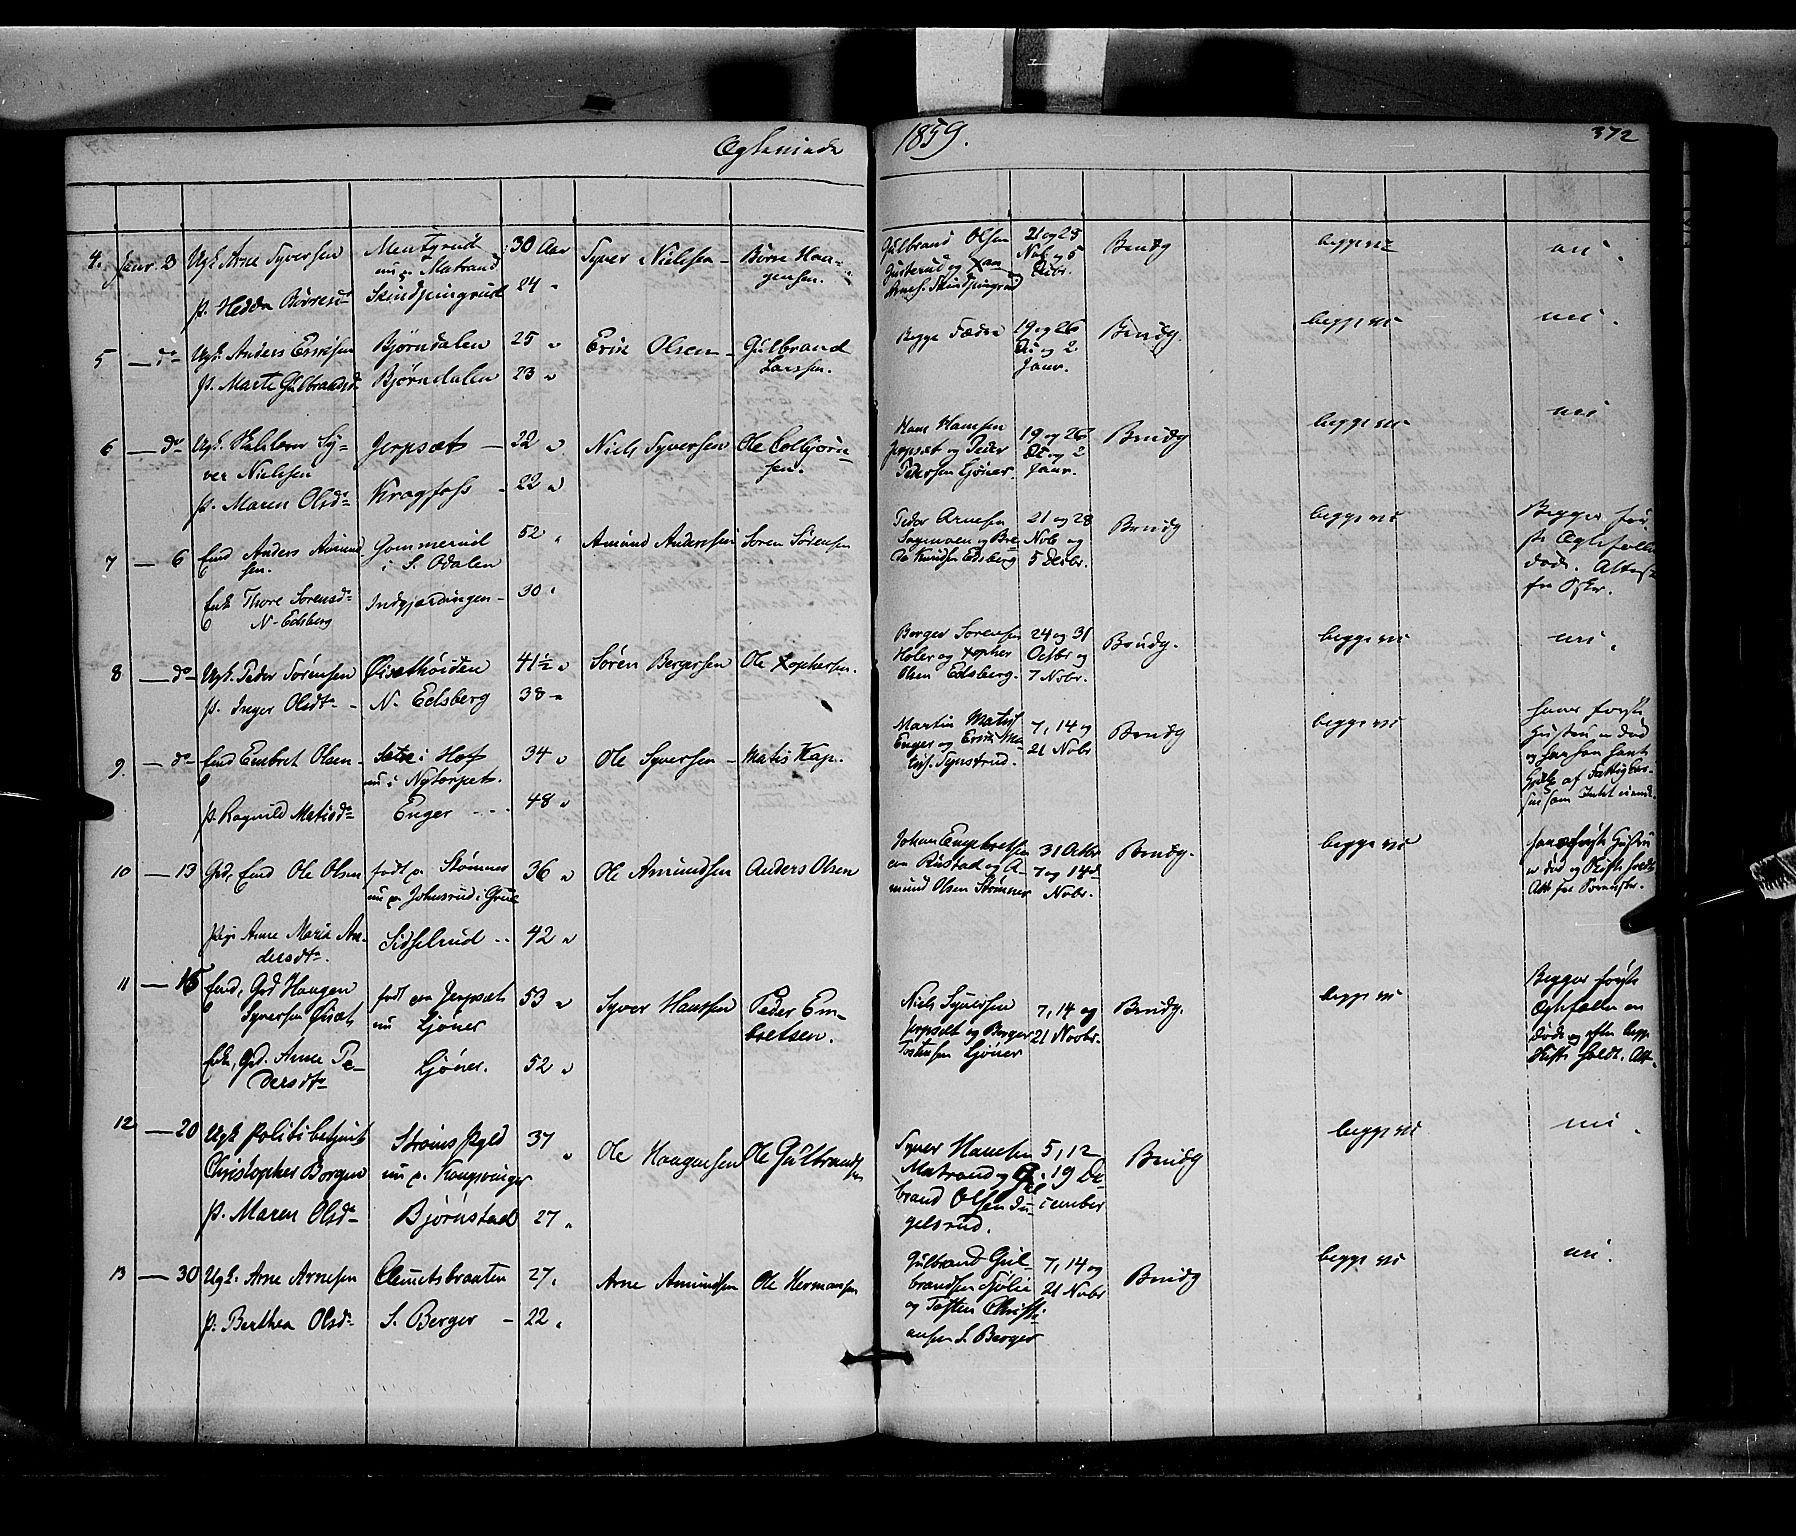 Ægteviede 1859. 372
4. Janr. 3 Ugk. Arne Syversen Mentzrud nu p. Matrand 30 Aar Syver Nielsen Børre Haa-
gensen.
Gulbrand Olsen
21 og 25
Nob. og 5
Decbr.
Bendg
begge vi
nei.
p. Hedda Børresd Skindpungrud 24
5 — do Ugk. Anders Ericsen Bjørndalen 25 " Eric Olsen Gulbrand
Larssen.
Begge Fædre
19 og 26
De og 2
Janr.
Bendg.
begge vi
nei.
p. Marte Gulbrandsd Bjørndalen 23 "
6 — do Ugk. Sy-
ver Nielsen
Jerpsæt 22 " Niels Syversen Ole Colbjørn-
sen.
Hans Hansen
Jerpsæt og Peder
Pedersen Ljøner.
19 og 26
De og 2
Janr.
Bendg
begge vi
nei
p. Maren Olsdr Kragfoss 22 "
7 — 6 Emd Anders Amund
sen.
Gommerud
i S. Odalen
52 " Amund Anderssen Soren Sørensen
Peder Arnesen
Sagmoen og Bre-
de Knudsen Edsberg
21 og 28
Nob og
5 Decbr.
Bendg
begge vi
Begges før-
ste Ægtefolk
døde. Attest
fra
Enk Thore Sorensdr
N. Edsberg
Indgjærdingen 30 "
8 — do Ugk. Peder Sørensen Øisethøiden 41½ " Søren Bergersen Ole Xophersen.
Berger Sorensen
Holer og Xopher
Olsen Edsberg.
24 og 31
Octbr og
7 Nobr.
Bendg.
begge vi
nei.
p. Inger Olsdtr N. Edsberg 38 "
9. — do Emd Embret Olsen Sætre i Hof
nu i Nytorpet.
34 " Ole Syversen Matis Kap.
Martin Matis
Enger og Erik Ma-
tis. Tynstrud.
7, 14 og
21 Nobr
Bendg
begge vi
hans første
Hustru er død
p. Ragnild Matisdr Enger 48 "
10 — 13 Grd. Emd Ole Olsen født p. Skømner
nu p. Johnsrud i Grue
36 " Ole Amundsen Anders Olsen
Johan Engebretsen
Rustad og A-
mund Olsen Skømner
31 Octbr
7 og 14de
Nobr.
Bendg.
begge vi
hans første Hustru
er død og Skifte holdt
Pige Anne Maria An-
dersdtr.
Sidselrud 42 "
11 — 15 Emd, Grd Haagen
Syversen Øisæt
født paa Jerpsæt
nu Ljøner
53 " Syver Hanssen Peder Em-
bretsen.
Niels Syversen
Jerpsæt og Berger
Tostensen Ljøner
7, 14 og
21 Novbr.
Bendg.
begge vi
Begges første
Ægtefæller ere
døde og efter begge
Skifte holdt. Att.
Enk, Grd. Anne Pe-
dersdtr
Ljøner. 52 "
12 — 20 Ugk Politibetjent
Christopher Borgen
Strøms Pgld
nu p. Kongsvinger
37 " Ole Haagensen Ole Gulbrands
sen
Syver Hansen
Matrand og Gul-
brand Olsen Du-
gelsrud.
5, 12
19 De-
cember
Bendg
begge vi
nei.
p. Maren Olsdr Bjørnstad 27 "
13 — 30 Ugk. Arne Arnesen Clemetsbraaten 27 " Arne Amundsen Ole Hermansen
Gulbrand Gul-
brandsen Fjølie
og Tosten Christi-
ansen S. Berger
7, 14 og
21 Nobr
Bendg
begge vi
nei.
p. Berthea Olsdr S. Berger 22 "